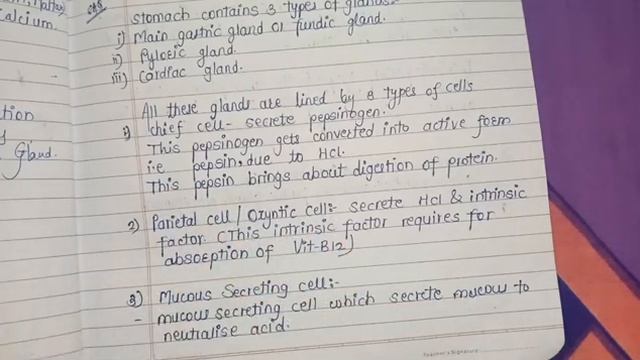 Calcium.
tion
Gland.
Ans
stomach contains 3 types of glands.
i) Main gastric gland or fundic gland.
ii) Pyloric gland.
iii) Cardiac gland.
All these glands are lined by 3 types of cells
1) chief cell- secrete pepsinogen.
This pepsinogen gets converted into active form
i.e pepsin, due to Hcl.
This pepsin brings about digestion of protein.
2) Parietal cell / Oxyntic cell:- secrete Hcl & intrinsic
factor. (This intrinsic factor requires for
absorption of Vit-B12)
3) Mucous Secreting cell:-
- mucous secreting cell which secrete mucous to
neutralise acid.
Teacher's Signature